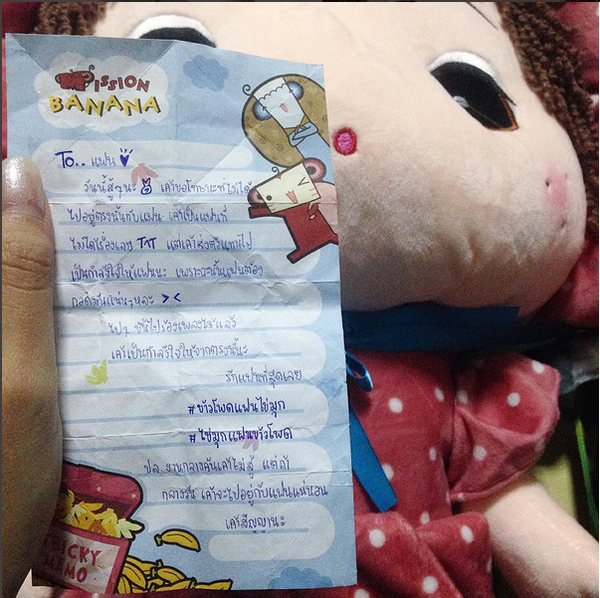 MISSION
BANANA
To.. แฟน
วันนี้สู้ๆนะ เค้าขอโทษนะที่ไม่ได้
ไปอยู่ตรงนั้นกับแฟน เค้าเป็นแฟนที่
ไม่ได้เรื่องเลย TAT แต่เค้าส่งตัวแทนไป
เป็นกำลังใจให้แฟนนะ เพราะฉะนั้นแฟนต้อง
กอดมันแน่นๆหละ ><
ไปๆ ขึ้นไปร้องเพลงได้แล้ว
เค้าเป็นกำลังใจให้จากตรงนี้นะ
รักแฟนที่สุดเลย
#ข้าวโพดแฟนไข่มุก
#ไข่มุกแฟนข้าวโพด
ปล งานกลางคืนเค้าไม่สู้ แต่ถ้า
กลางวัน เค้าจะไปอยู่กับแฟนแน่นอน
เค้าสัญญานะ
TRICKY
MEMO